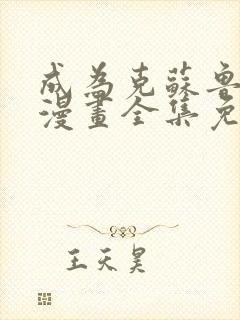 成為克蘇魯
漫畫全集免
王天昊